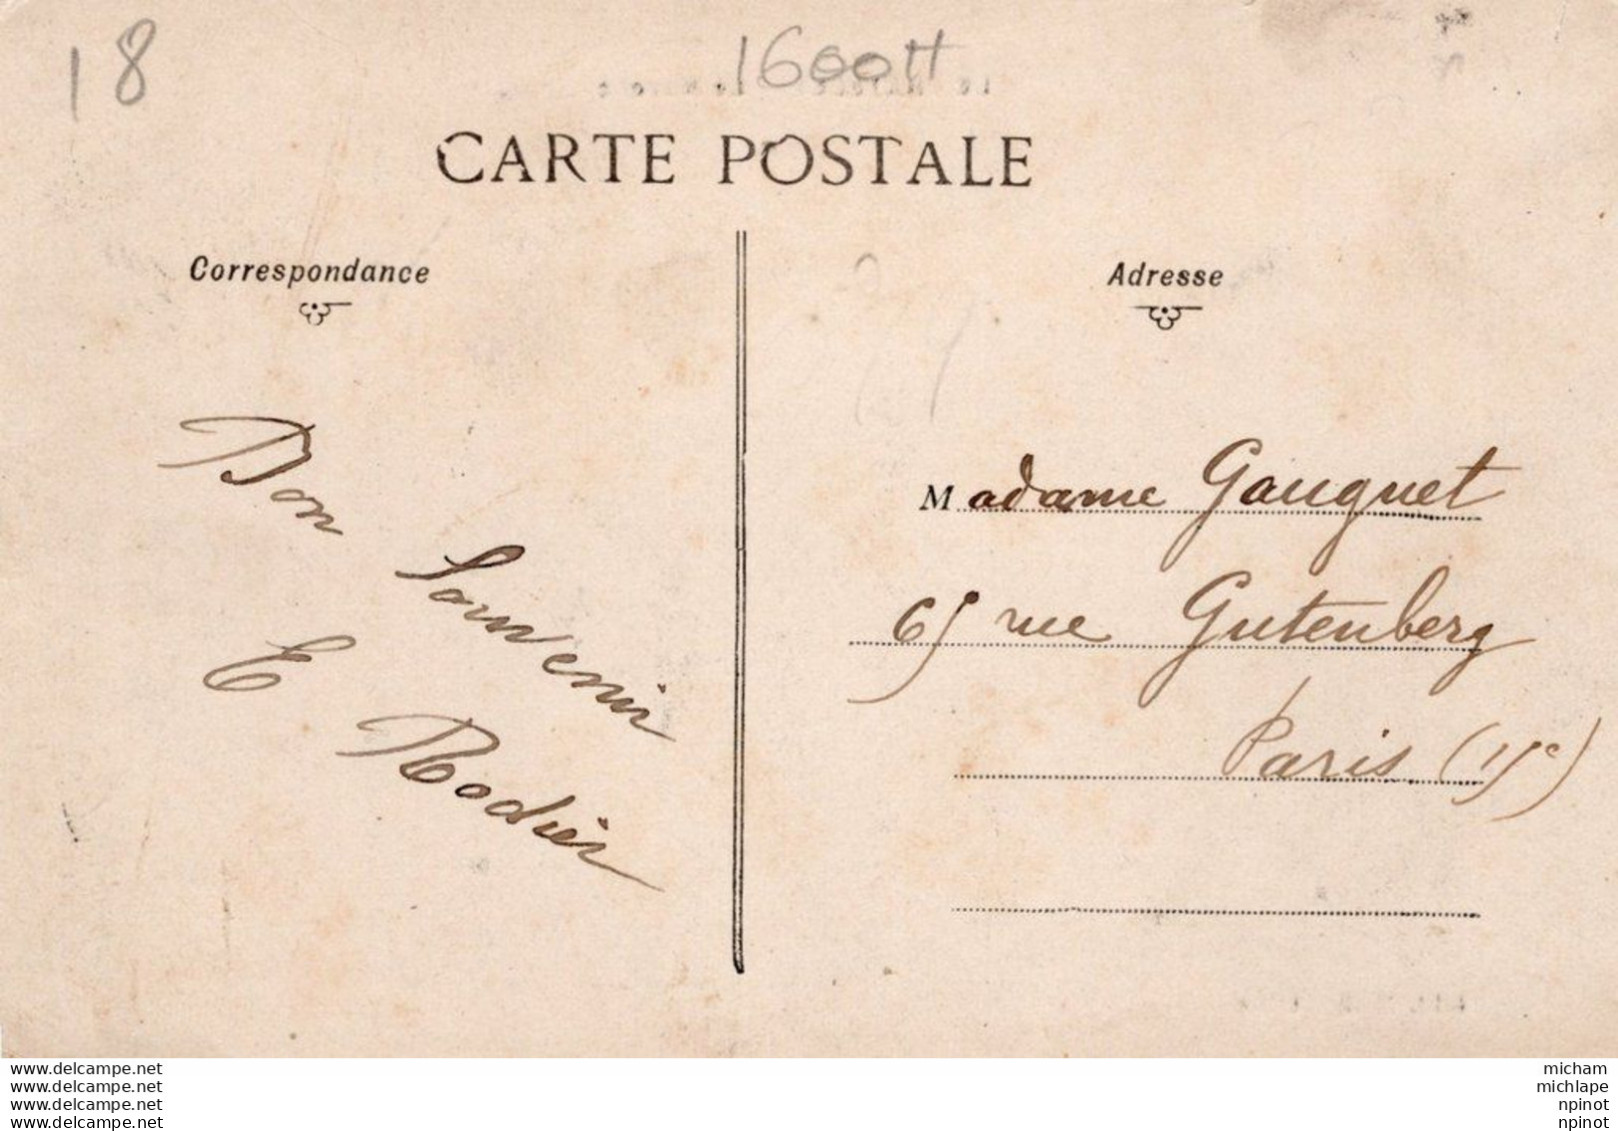 18
1600
CARTE POSTALE
Correspondance
Bon
Souvenir
E Rodier
Adresse
Madame Gauguet
65 rue Gutenberg
Paris (15e)
www.delcampe.net
www.delcampe.net
www.delcampe.net
www.delcampe.net
micham
michlape
npinot
npinot